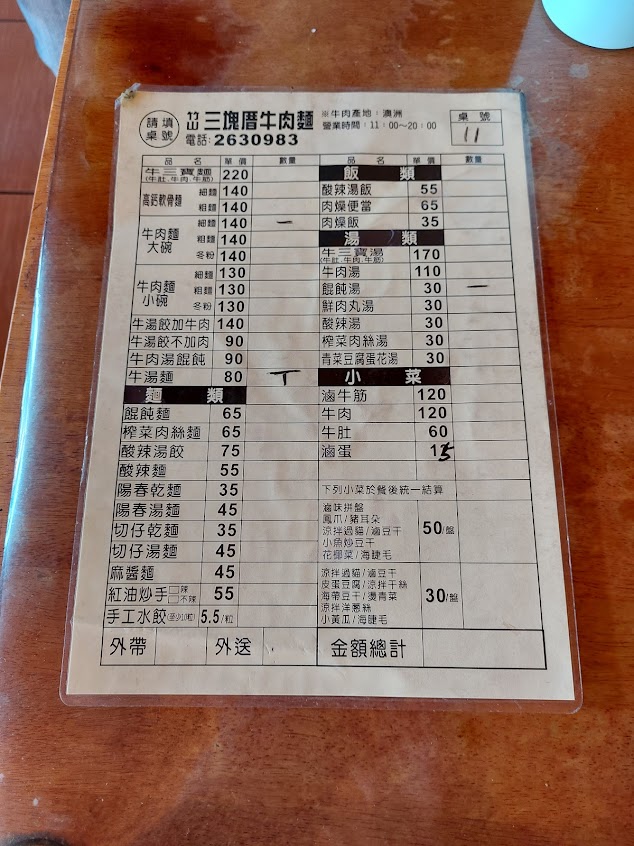 請填
桌號
竹山 三塊厝牛肉麵
電話:2630983
※牛肉產地：澳洲
營業時間：11：00～20：00
桌號
11
品名 單價 數量
牛三寶麵 220
(牛肚、牛肉、牛筋)
高鈣軟骨麵 細麵 140
粗麵 140
牛肉麵大碗 細麵 140 一
粗麵 140
冬粉 140
牛肉麵小碗 細麵 130
粗麵 130
冬粉 130
牛湯餃加牛肉 140
牛湯餃不加肉 90
牛肉湯餛飩 90
牛湯麵 80 丅
麵類
餛飩麵 65
榨菜肉絲麵 65
酸辣湯餃 75
酸辣麵 55
陽春乾麵 35
陽春湯麵 45
切仔乾麵 35
切仔湯麵 45
麻醬麵 45
紅油炒手 □辣 □不辣 55
手工水餃(至少10粒) 5.5/粒
外帶 外送
品名 單價 數量
飯類
酸辣湯飯 55
肉燥便當 65
肉燥飯 35
湯類
牛三寶湯 170
(牛肚、牛肉、牛筋)
牛肉湯 110
餛飩湯 30 一
鮮肉丸湯 30
酸辣湯 30
榨菜肉絲湯 30
青菜豆腐蛋花湯 30
小菜
滷牛筋 120
牛肉 120
牛肚 60
滷蛋 15
下列小菜於餐後統一結算
滷味拼盤
鳳爪/豬耳朵
涼拌過貓/滷豆干
小魚炒豆干
花椰菜/海睫毛
50/盤
涼拌過貓/滷豆干
皮蛋豆腐/涼拌干絲
海帶豆干/燙青菜
涼拌洋蔥絲
小黃瓜/海睫毛
30/盤
金額總計